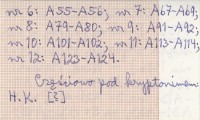 nr 6: A55-A56; nr 7: A67-A69;
nr 8: A79-A80; nr 9: A91-A92;
nr 10: A101-A102; nr 11: A113-A114;
nr 12: A123-A124.
Częściowo pod kryptonimem:
H.K. [?]